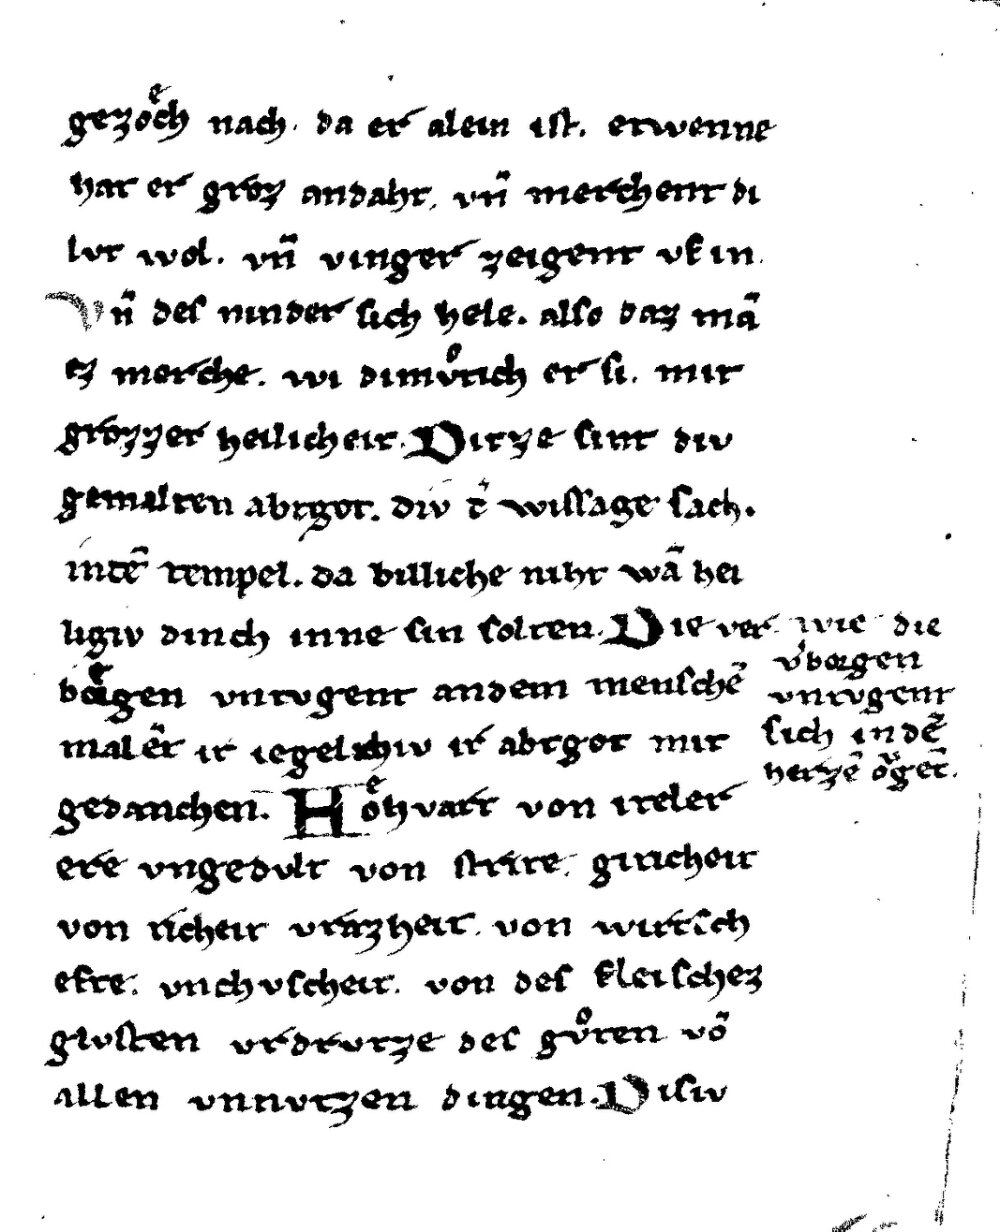 gezoͤch nach. da er alein ist. etwenne
hat er groz andaht. vn̄ merchent di
lvt wol. vn̄ vinger zeigent vf in.
Vn̄ des ninder sich hele. also daz mā
ez merche. wi dimvͦtich er si. mit
grozzer heilicheit. Ditze sint div
gemalten abtgot. div d̄ wissage sach.
intē tempel. da billiche niht wā hei
ligiv dinch inne sin solten. Die ver
boͤrgen vntvgent andem menschē
malēt ir iegelichiv ir abtgot mit
gedanchen. Hoͤhvart von iteler
ere vngedvlt von strite. giticheit
von richeit vrazheit. von wirtsch
efte. vnchvscheit. von des fleischez
glvsten vrdrvtze des gvͦten vō
allen vnnvtzen dingen. Disiv
wie die
v̓borgen
vntvgent
sich in dē
hertzē oͮgēt.